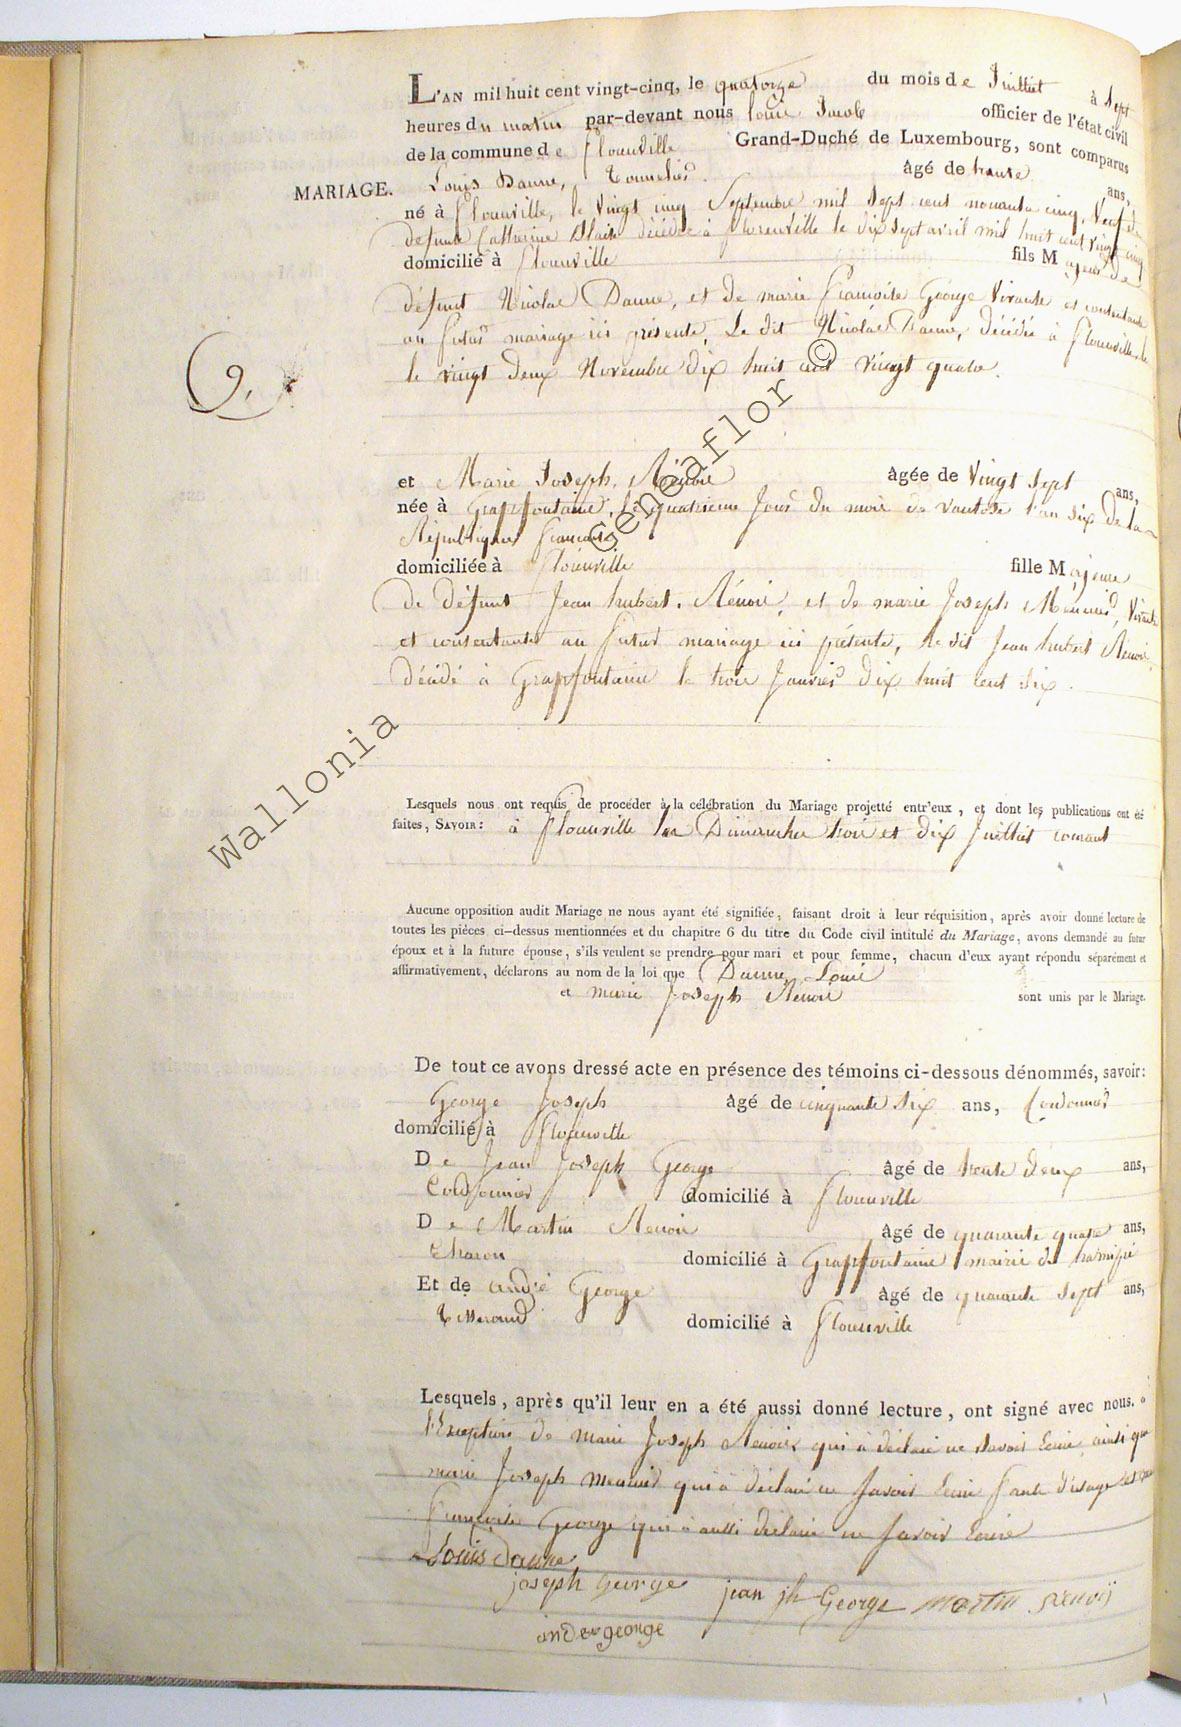 L'AN mil huit cent vingt-cinq, le quatorze du mois de Juillet à Sept
heures du matin par-devant nous louis Jacob officier de l'état civil
de la commune de florenville Grand-Duché de Luxembourg, sont comparus
MARIAGE. Louis Daune, Tonnelier. âgé de trente ans,
né à florenville, le vingt cinq Septembre mil sept cent nonante cinq, Veuf de
defunte Catherine Blaise décédée à florenville le dix sept avril mil huit cent vingt cinq
domicilié à florenville fils Majeur de
défunt Nicolas Daune, et de marie françoise George Vivante et consentante
au futur mariage ici présente, le dit Nicolas Daune, décédé à florenville le
le vingt deux Novembre dix huit cent vingt quatre.
9.
et Marie Joseph Rénoir âgée de Vingt Sept ans,
née à Grapfontaine, le quatrieme Jour du mois de Vantose l'an six de la
République francaise
domiciliée à florenville fille Majeure
de défunt Jean hubert Rénoir, et de marie Joseph Meunier, Vivante
et consentante au futur mariage ici présente, le dit Jean hubert Renoir,
décédé à Grapfontaine le trois Janvier dix huit cent six.
Lesquels nous ont requis de procéder à la célébration du Mariage projetté entr'eux, et dont les publications ont été
faites, SAVOIR: à florenville les Dimanches trois et dix Juillet courant
Aucune opposition audit Mariage ne nous ayant été signifiée, faisant droit à leur réquisition, après avoir donné lecture de
toutes les piéces ci-dessus mentionnées et du chapitre 6 du titre du Code civil intitulé du Mariage, avons demandé au futur
époux et à la future épouse, s'ils veulent se prendre pour mari et pour femme, chacun d'eux ayant répondu séparément et
affirmativement, déclarons au nom de la loi que Daune Louis
et marie Joseph Rénoir sont unis par le Mariage.
De tout ce avons dressé acte en présence des témoins ci-dessous dénommés, savoir:
George Joseph âgé de cinquante six ans, Cordonnier
domicilié à florenville
De Jean Joseph George âgé de trente deux ans,
Cordonnier domicilié à florenville
De Martin Renoir âgé de quarante quatre ans,
Charon domicilié à Grapfontaine mairie de
Et de andré George âgé de quarante sept ans,
tisserand domicilié à florenville
Lesquels, après qu'il leur en a été aussi donné lecture, ont signé avec nous. à
l'Exception de marie Joseph Renoir qui à déclaré ne savoir Ecrire, ainsi que
marie Joseph meunier qui à déclaré ne Savoir Ecrire faute d'usage et que
françoise George qui à aussi déclaré ne Savoir Ecrire
Louis daune
joseph George jean jh George martin renoir
andre george
Wallonia Geneaflor ©